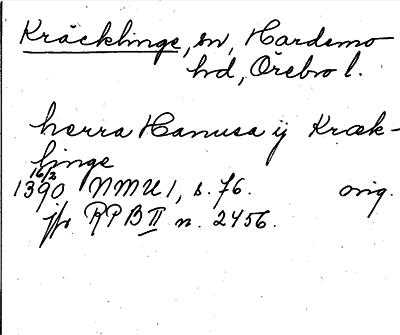 Kräcklinge, sn, Hardemo
hd, Örebro l.
herra Hanusa ij Kræk-
linge
16/2
1390 NMU 1, s. 76. orig.
jfr RPB II n. 2456.